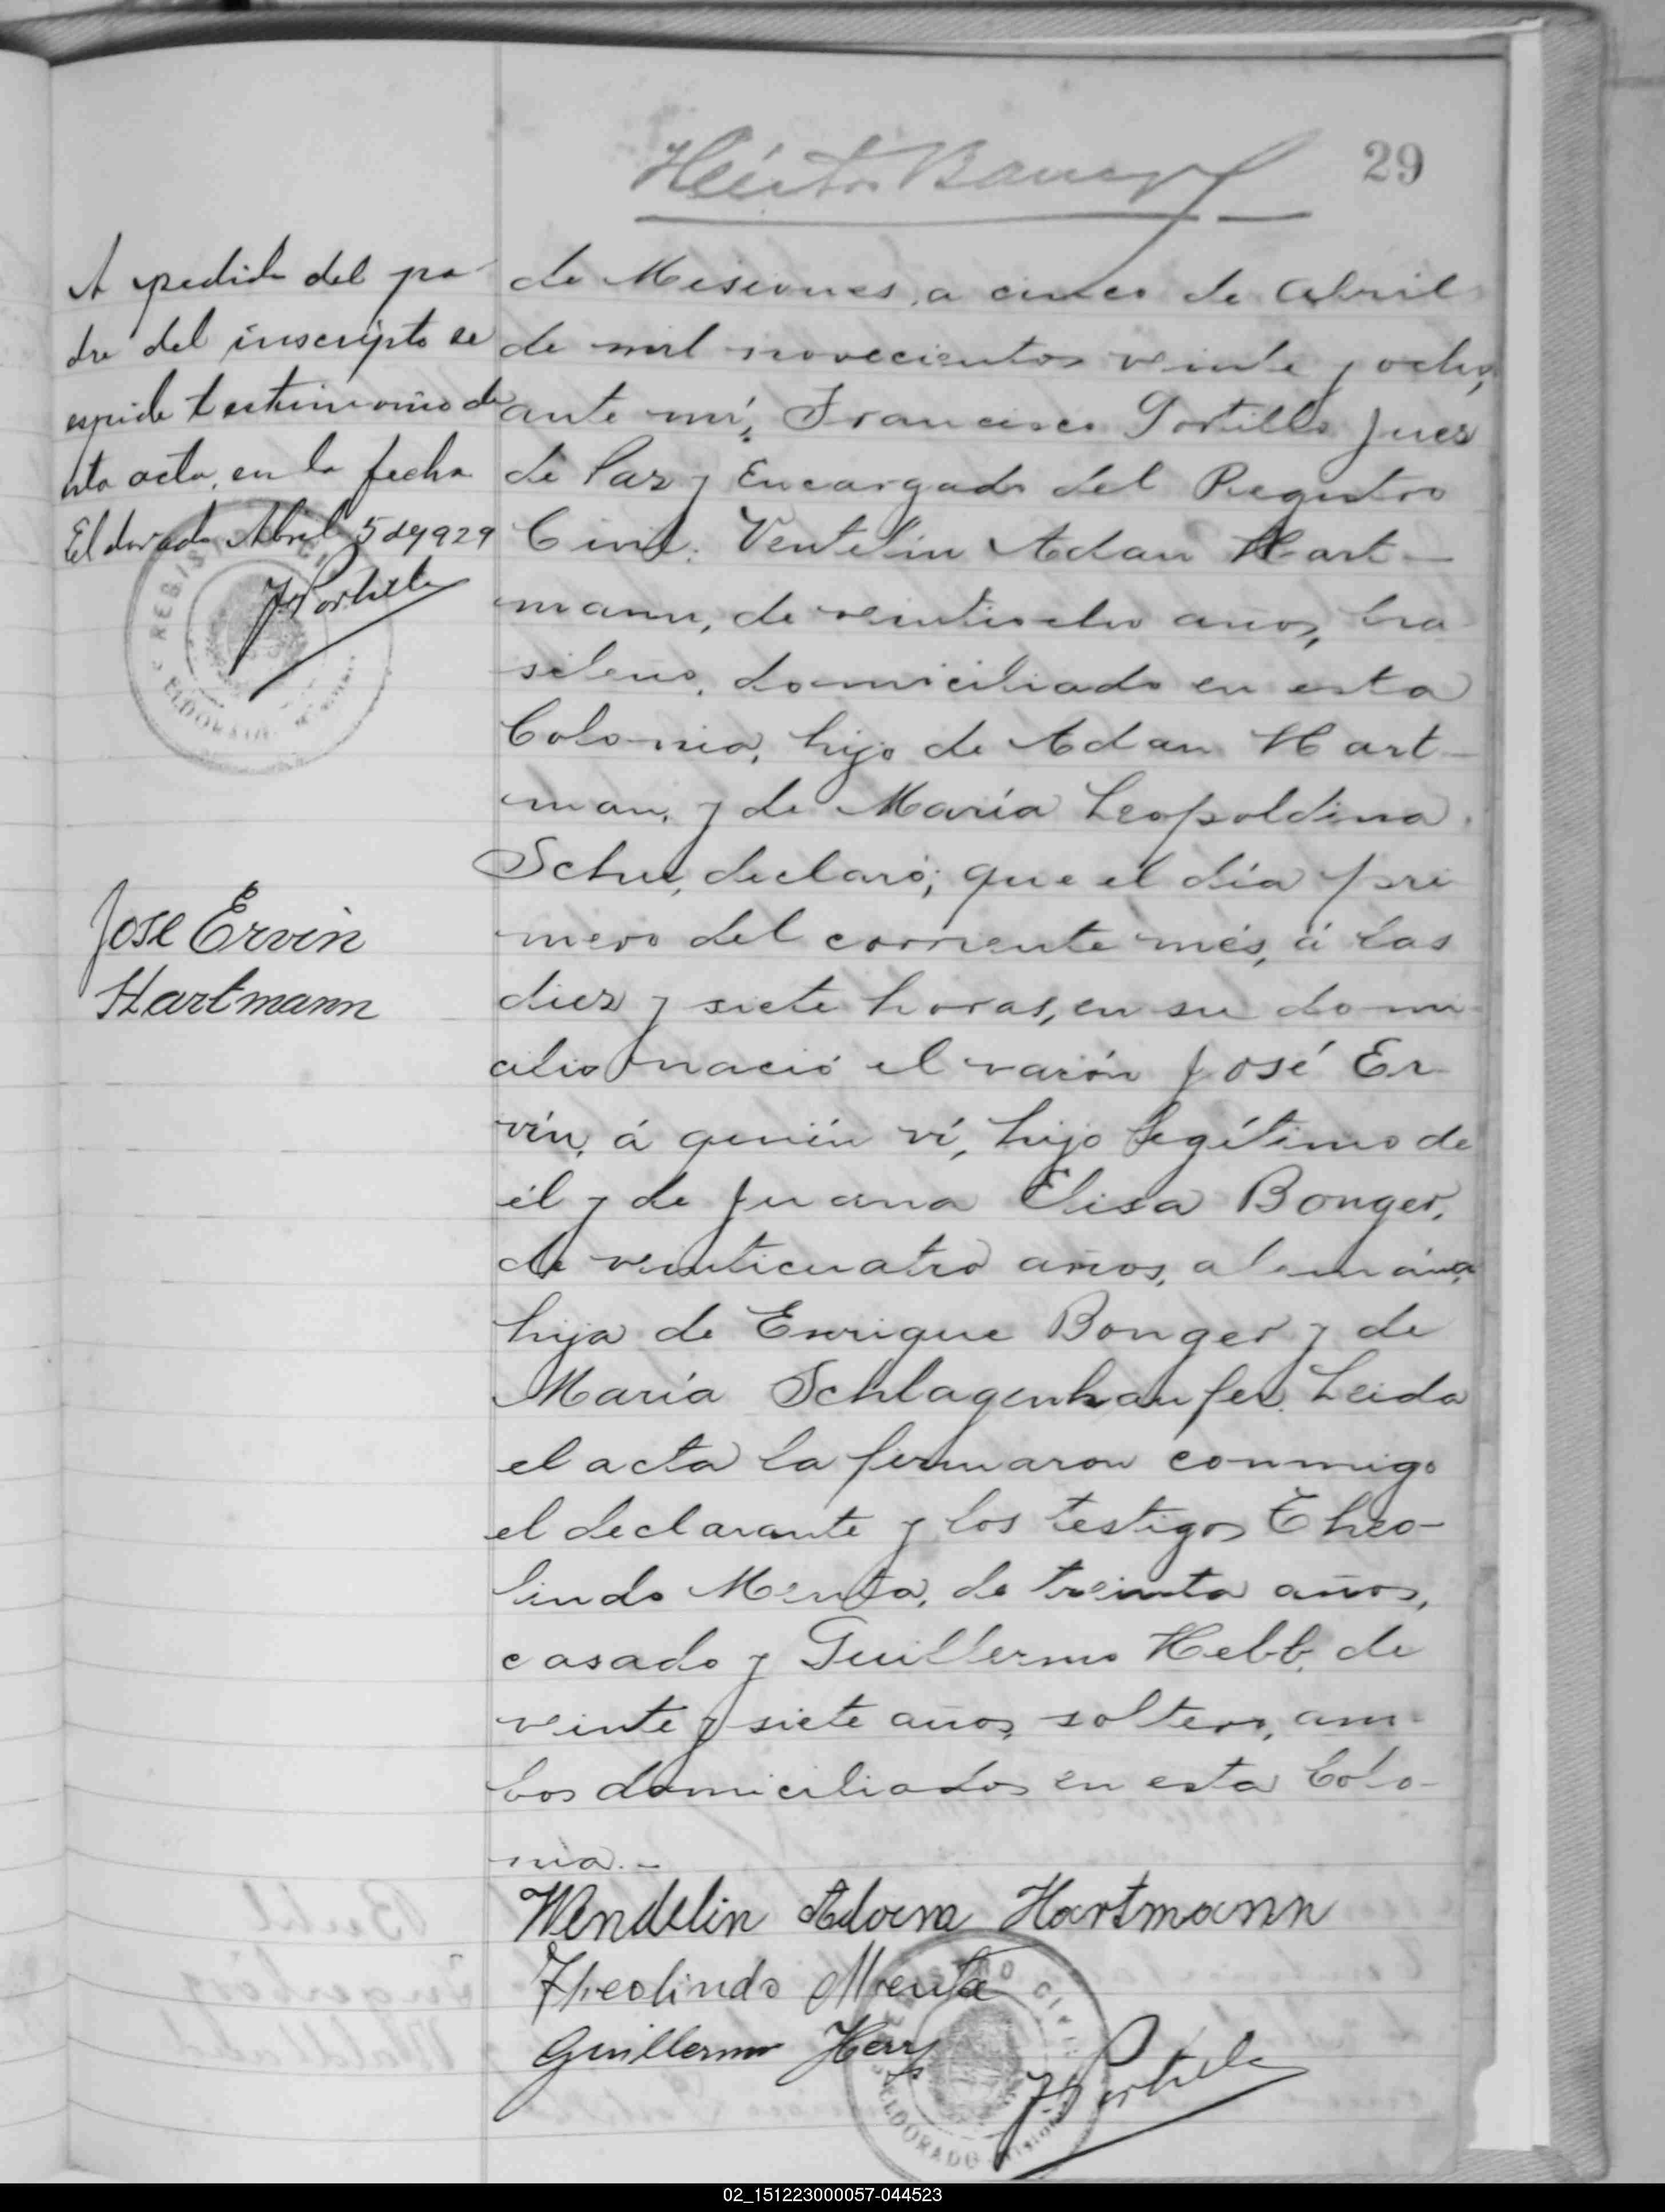 29
A pedido del pa-
dre del inscripto se
espide testimonio de
esta acta, en la fecha
Eldorado Abril 5 de 1929
F. Portillo
REGISTRO CIVIL
ELDORADO. Misiones
Jose Ervin
Hartmann
de Misiones, a cinco de Abril
de mil novecientos veinte y ocho,
ante mi, Francisco Portillo Juez
de Paz y Encargado del Registro
Civil. Ventelin Adan Hart-
mann, de veintiocho anos, bra-
sileno, domiciliado en esta
Colonia, hijo de Adan Hart-
man, y de María Leopoldina
Schu, declaró; que el día pri-
mero del corriente més, á las
diez y siete horas, en su domi-
cilio nació el varón José Er-
vín, á quién ví, hijo legítimo de
él y de Juana Elisa Bonger,
de veinticuatro años, alemána,
hija de Enrique Bonger y de
María Schlagenhaufer. Leida
el acta la firmaron conmigo
el declarante y los testigos Theo-
lindo Menta, de treinta años,
casado y Guillermo Hebb, de
veinte y siete años, soltero, am-
bos domiciliados en esta Colo-
nia.-
Wendelin Adam Hartmann
Theolindo Menta
Guillermo
F. Portillo
REGISTRO CIVIL
ELDORADO. Misiones
02_151223000057-044523